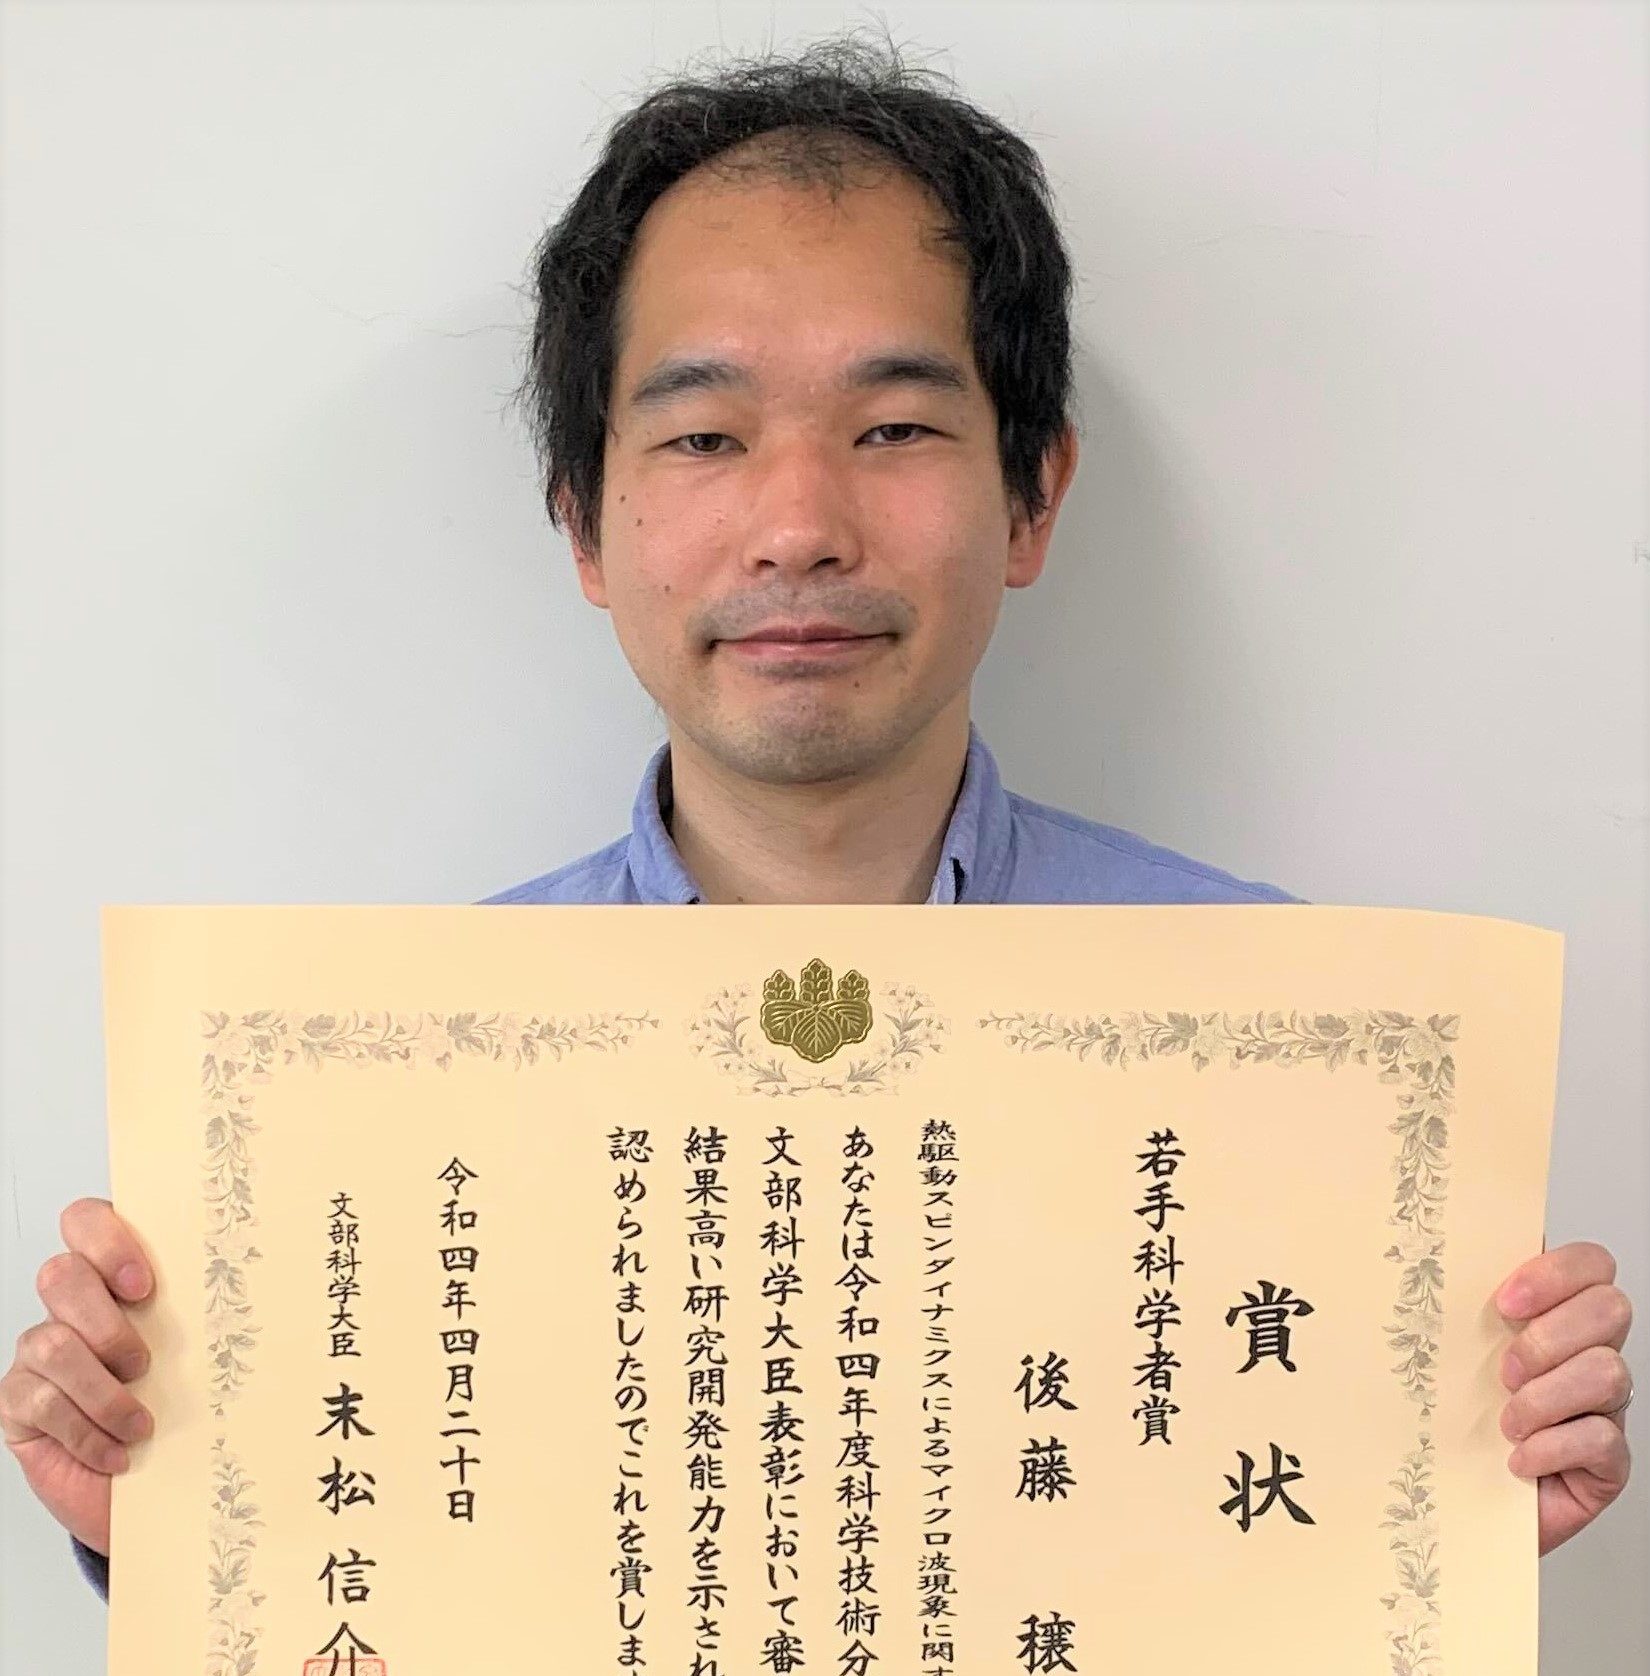 賞状
若手科学者賞
後藤 穣
熱駆動スピンダイナミクスによるマイクロ波現象に関す
あなたは令和四年度科学技術分
文部科学大臣表彰において審
結果高い研究開発能力を示され
認められましたのでこれを賞しま
令和四年四月二十日
文部科学大臣 末松信介